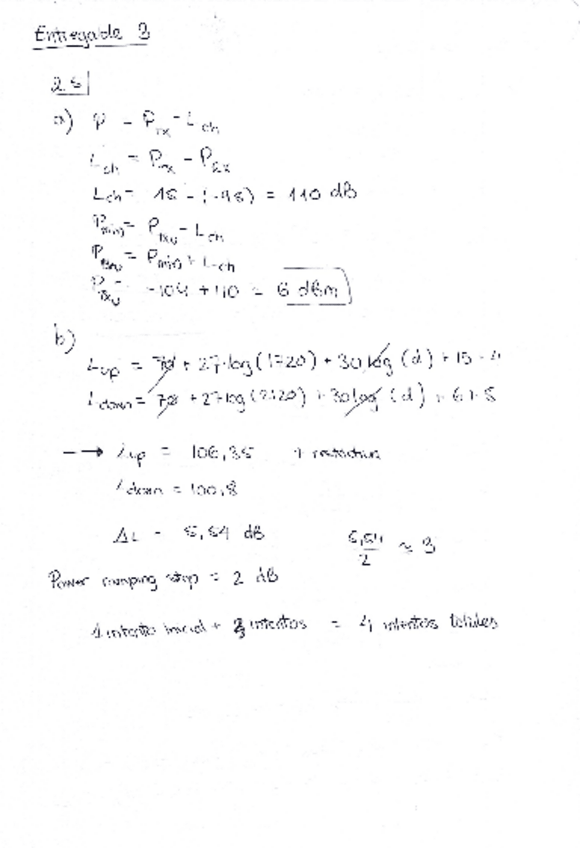 Entregable 3
25
a) P = P_rx - L_ch
L_ch = P_tx - P_rx
L_ch = 15 - (-95) = 110 dB
P_min = P_txu - L_ch
P_txu = P_min + L_ch
P_txu = -104 + 110 = 6 dBm
b)
L_up = 70 + 27·log(1720) + 30 log (d) + 15 -
L_down = 70 + 27 log (2120) + 30 log (d) + 6
→ L_up = 106,35
L_down = 100,8
ΔL = 5,54 dB 5,54/2 ≈ 3
Power ramping step = 2 dB
1 intento inicial + 3 intentos = 4 intentos totales